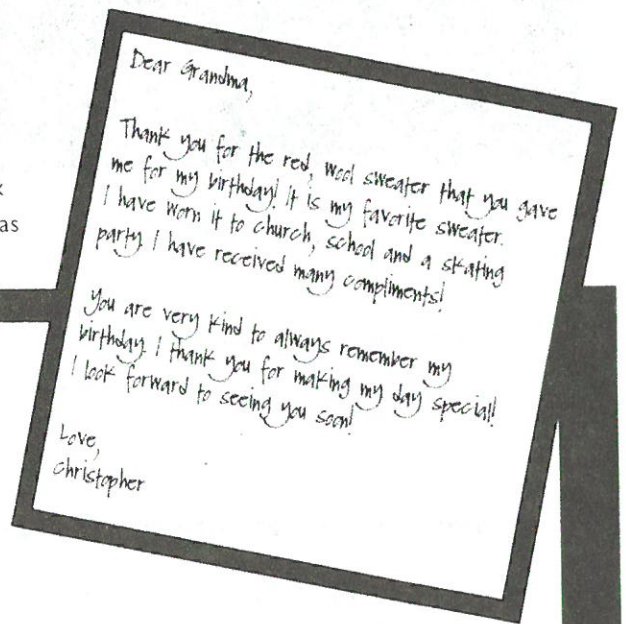 Dear Grandma,
Thank you for the red, wool sweater that you gave
me for my birthday! It is my favorite sweater.
I have worn it to church, school and a skating
party. I have received many compliments!
You are very kind to always remember my
birthday. I thank you for making my day special!
I look forward to seeing you soon!
Love,
Christopher
as